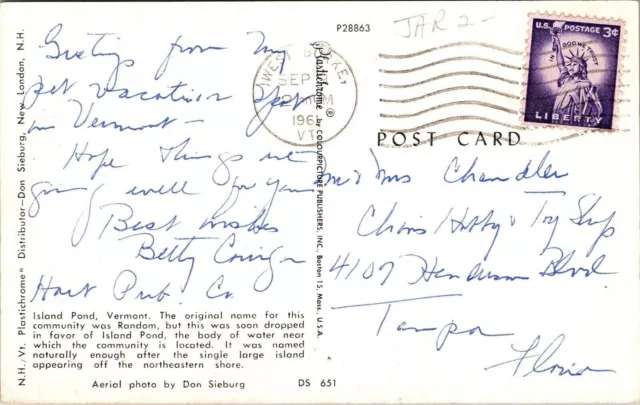 P28863
JAR 2-
Greetings from my
pet vacation spot
in Vermont -
Hope things are
going well for you
Best wishes
Betty
Hart Pub. Co
WEST BURKE,
SEP
PM
196
VT.
U.S. POSTAGE 3¢
IN GOD WE TRUST
LIBERTY
POST CARD
Mr & Mrs Chandler
Chris Hobby & Toy Shop
4107 Henderson Blvd.
Tampa
Florida
Plastichrome® by COLOURPICTURE PUBLISHERS, INC., Boston 15, Mass., U.S.A.
N.H./Vt. Plastichrome® Distributor—Don Sieburg, New London, N.H.
Island Pond, Vermont. The original name for this
community was Random, but this was soon dropped
in favor of Island Pond, the body of water near
which the community is located. It was named
naturally enough after the single large island
appearing off the northeastern shore.
Aerial photo by Don Sieburg
DS 651